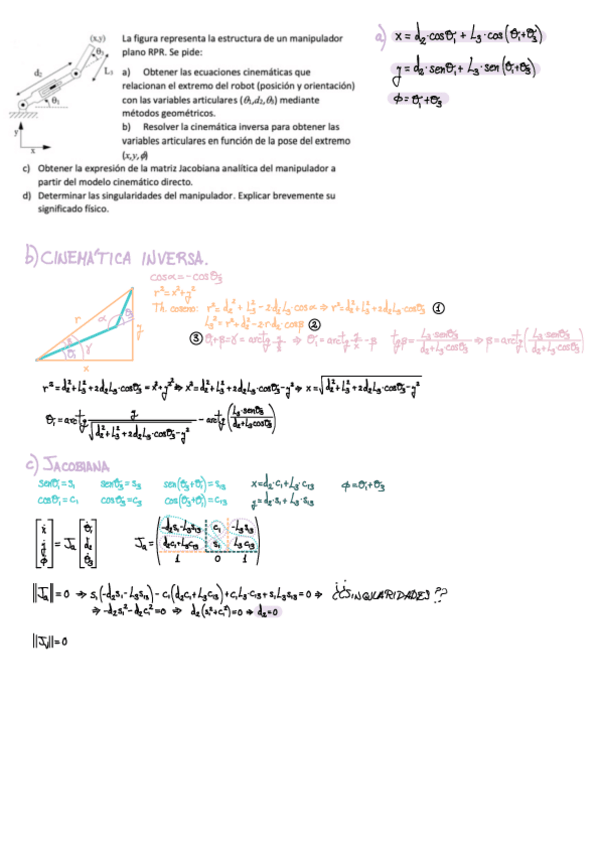 La figura representa la estructura de un manipulador
plano RPR. Se pide:
a) Obtener las ecuaciones cinemáticas que
relacionan el extremo del robot (posición y orientación)
con las variables articulares (θ₁,d₂,θ₃) mediante
métodos geométricos.
b) Resolver la cinemática inversa para obtener las
variables articulares en función de la pose del extremo
(x,y,ϕ)
c) Obtener la expresión de la matriz Jacobiana analítica del manipulador a
partir del modelo cinemático directo.
d) Determinar las singularidades del manipulador. Explicar brevemente su
significado físico.
(x,y)
d₂
L₃
θ₃
θ₁
y
x
a) x = d₂·cosθ₁ + L₃·cos(θ₁+θ₃)
y = d₂·senθ₁ + L₃·sen(θ₁+θ₃)
ϕ = θ₁+θ₃
b) CINEMÁTICA INVERSA.
cosα = -cosθ₃
r² = x²+y²
Th. coseno: r² = d₂² + L₃² - 2·d₂L₃·cosα ⇒ r² = d₂²+L₃²+2d₂L₃·cosθ₃ ①
L₃² = r²+d₂²-2·r·d₂·cosβ ②
③ θ₁+β=γ = arctg y/x ⇒ θ₁ = arctg y/x - β tgβ = L₃·senθ₃/(d₂+L₃·cosθ₃) ⇒ β = arctg(L₃·senθ₃/(d₂+L₃cosθ₃))
r
α
θ₃
y
β
θ₁
γ
x
r² = d₂²+L₃²+2d₂L₃·cosθ₃ = x²+y² ⇒ x² = d₂²+L₃²+2d₂L₃·cosθ₃-y² ⇒ x = √(d₂²+L₃²+2d₂L₃·cosθ₃-y²)
θ₁ = arctg y/√(d₂²+L₃²+2d₂L₃·cosθ₃-y²) - arctg(L₃·senθ₃/(d₂+L₃cosθ₃))
c) JACOBIANA
senθ₁=s₁ senθ₃=s₃ sen(θ₃+θ₁)=s₁₃ x=d₂·c₁+L₃·c₁₃ ϕ=θ₁+θ₃
cosθ₁=c₁ cosθ₃=c₃ cos(θ₃+θ₁)=c₁₃ y=d₂·s₁+L₃·s₁₃
[ẋ ẏ ϕ̇] = Ja [θ̇₁ ḋ₂ θ̇₃]
Ja = (-d₂s₁-L₃s₁₃ c₁ -L₃s₁₃
d₂c₁+L₃c₁₃ s₁ L₃c₁₃
1 0 1)
||Ja||=0 ⇒ s₁(-d₂s₁-L₃s₁₃) - c₁(d₂c₁+L₃c₁₃)+c₁L₃·c₁₃+s₁L₃s₁₃=0 ⇒ ¿¿SINGULARIDADES??
⇒ -d₂s₁²-d₂c₁²=0 ⇒ d₂(s₁²+c₁²)=0 ⇒ d₂=0
||Jv||=0